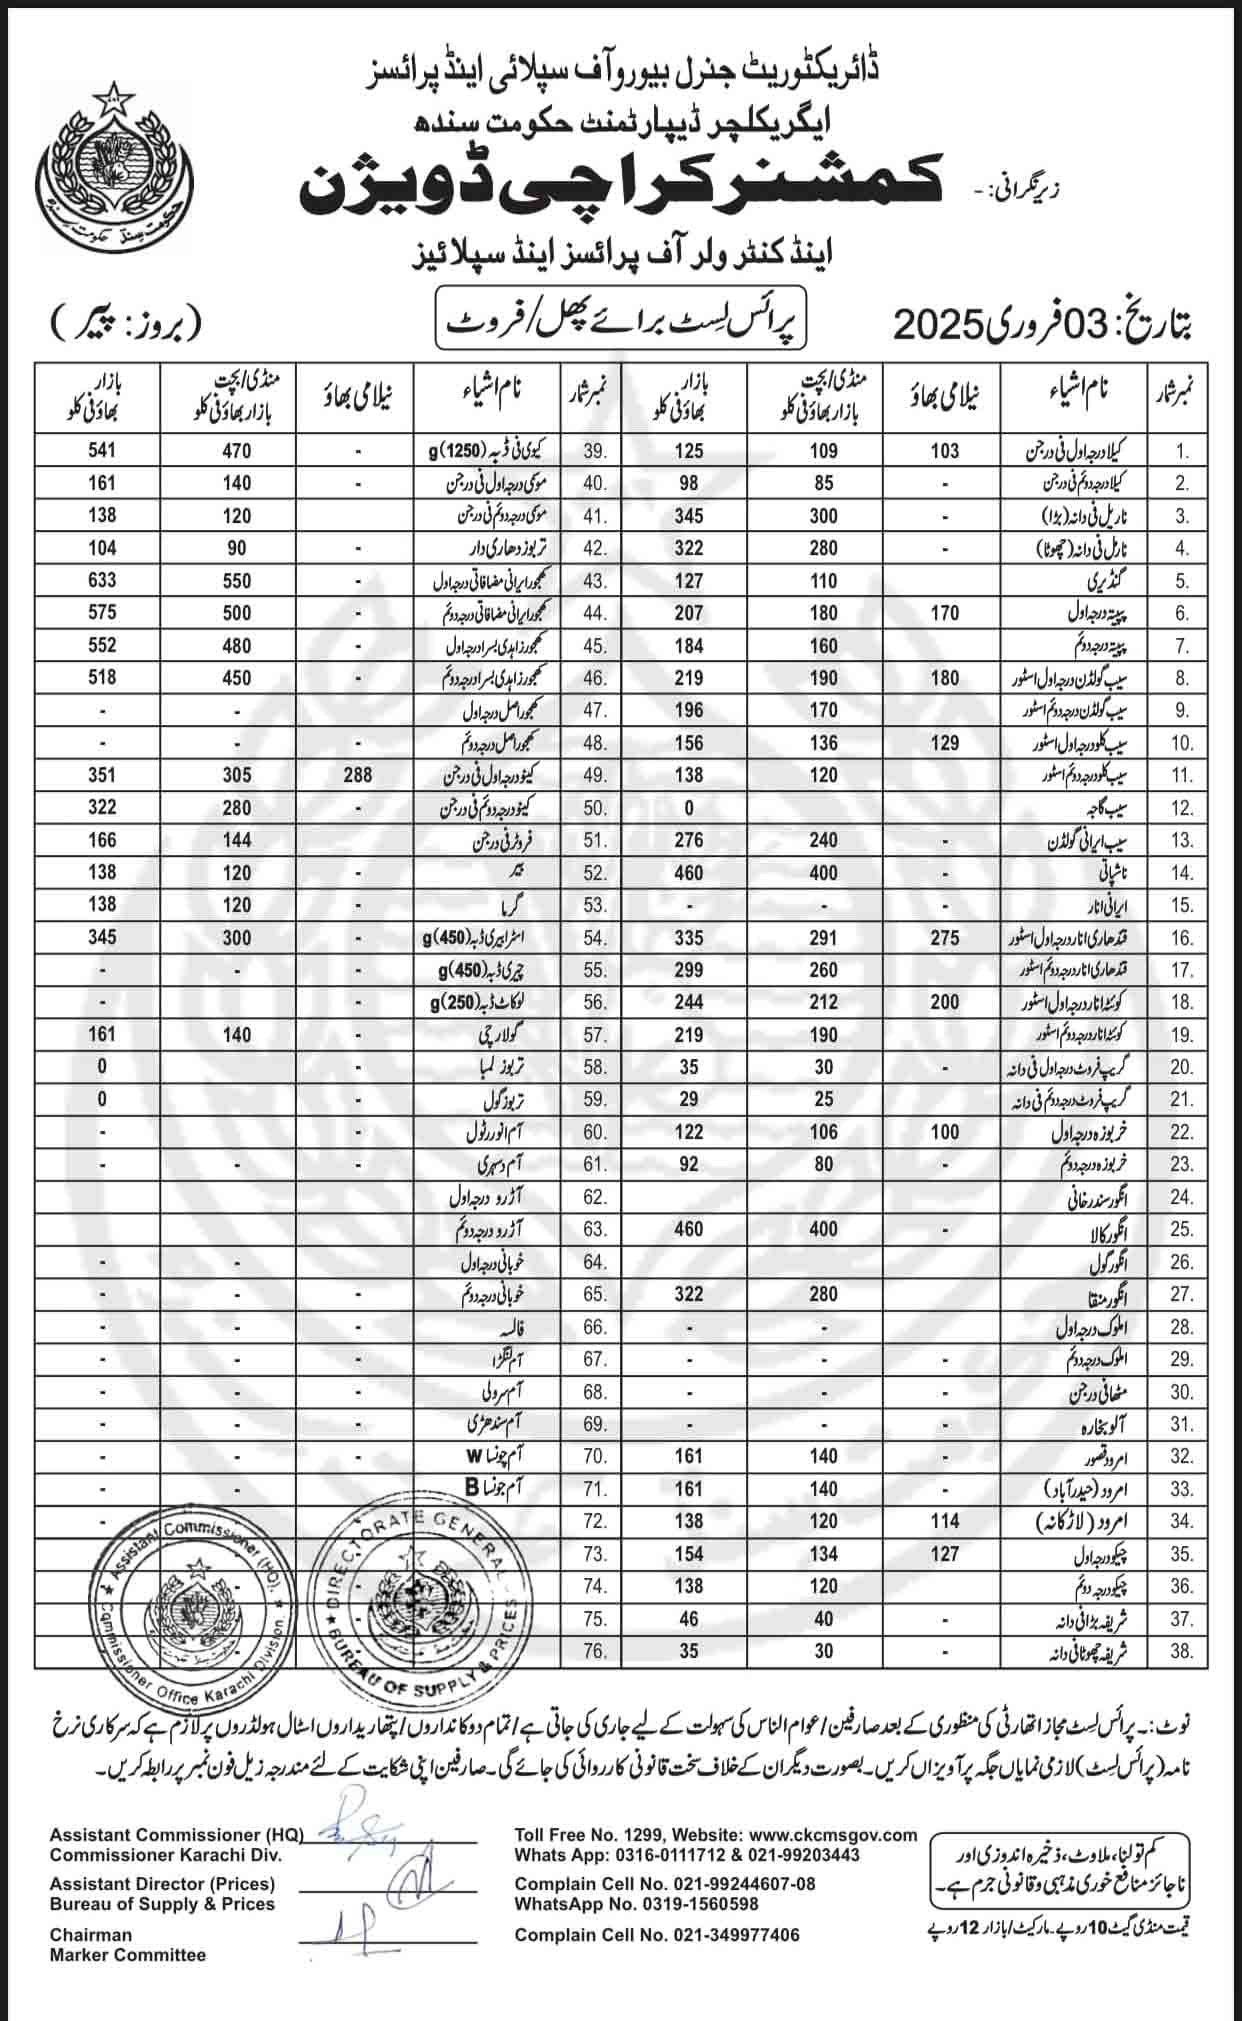 ڈائریکٹوریٹ جنرل بیورو آف سپلائی اینڈ پرائسز
ایگریکلچر ڈیپارٹمنٹ حکومت سندھ
زیر نگرانی: - کمشنر کراچی ڈویژن
اینڈ کنٹرولر آف پرائسز اینڈ سپلائیز
بتاریخ: 03 فروری 2025 پرائس لسٹ برائے پھل/فروٹ (بروز: پیر)
نمبر شمار نام اشیاء نیلامی بھاؤ منڈی/بچت بازار بھاؤ فی کلو بازار بھاؤ فی کلو نمبر شمار نام اشیاء نیلامی بھاؤ منڈی/بچت بازار بھاؤ فی کلو بازار بھاؤ فی کلو
1. کیلا درجہ اول فی درجن 103 109 125 39. کیوی فی ڈبہ (1250)g - 470 541
2. کیلا درجہ دوئم فی درجن - 85 98 40. موسمی درجہ اول فی درجن - 140 161
3. ناریل فی دانہ (بڑا) - 300 345 41. موسمی درجہ دوئم فی درجن 120 138
4. نارل فی دانہ (چھوٹا) - 280 322 42. تربوز دھاری دار - 90 104
5. گنڈیری 110 127 43. کھجور ایرانی مضافاتی درجہ اول - 550 633
6. پپیتہ درجہ اول 170 180 207 44. کھجور ایرانی مضافاتی درجہ دوئم - 500 575
7. پپیتہ درجہ دوئم 160 184 45. کھجور زاہدی بسرا درجہ اول - 480 552
8. سیب گولڈن درجہ اول اسٹور 180 190 219 46. کھجور زاہدی بسرا درجہ دوئم - 450 518
9. سیب گولڈن درجہ دوئم اسٹور 170 196 47. کھجور اصل درجہ اول - -
10. سیب کلو درجہ اول اسٹور 129 136 156 48. کھجور اصل درجہ دوئم - - -
11. سیب کلو درجہ دوئم اسٹور 120 138 49. کینو درجہ اول فی درجن 288 305 351
12. سیب گاچہ 0 50. کینو درجہ دوئم فی درجن - 280 322
13. سیب ایرانی گولڈن - 240 276 51. فروٹر فی درجن - 144 166
14. ناشپاتی - 400 460 52. بیر - 120 138
15. ایرانی انار - - - 53. گرما - 120 138
16. قندھاری انار درجہ اول اسٹور 275 291 335 54. اسٹرابیری ڈبہ (450)g - 300 345
17. قندھاری انار درجہ دوئم اسٹور 260 299 55. چیری ڈبہ (450)g - - -
18. کوئٹہ انار درجہ اول اسٹور 200 212 244 56. لوکاٹ ڈبہ (250)g - -
19. کوئٹہ انار درجہ دوئم اسٹور 190 219 57. گولارچی - 140 161
20. گریپ فروٹ درجہ اول فی دانہ - 30 35 58. تربوز لمبا - 0
21. گریپ فروٹ درجہ دوئم فی دانہ 25 29 59. تربوز گول - 0
22. خربوزہ درجہ اول 100 106 122 60. آم انور رٹول - -
23. خربوزہ درجہ دوئم - 80 92 61. آم دسہری - - -
24. انگور سندر خانی 62. آڑو درجہ اول
25. انگور کالا - 400 460 63. آڑو درجہ دوئم
26. انگور گول 64. خوبانی درجہ اول - -
27. انگور منقا 280 322 65. خوبانی درجہ دوئم - - -
28. املوک درجہ اول - - 66. فالسہ - - -
29. املوک درجہ دوئم - - - 67. آم لنگڑا - - -
30. مٹھا فی درجن - - - 68. آم سرولی - - -
31. آلو بخارہ - - - 69. آم سندھڑی - -
32. امرود قصور 140 161 70. آم چونسا W - - -
33. امرود (حیدرآباد) - 140 161 71. آم چونسا B - -
34. امرود (لاڑکانہ) 114 120 138 72. -
35. چیکو درجہ اول 127 134 154 73.
36. چیکو درجہ دوئم 120 138 74.
37. شریفہ بڑا فی دانہ - 40 46 75.
38. شریفہ چھوٹا فی دانہ - 30 35 76.
Assistant Commissioner (HQ), Commissioner Office Karachi Division
DIRECTORATE GENERAL BUREAU OF SUPPLY & PRICES
نوٹ:۔ پرائس لسٹ مجاز اتھارٹی کی منظوری کے بعد صارفین/عوام الناس کی سہولت کے لیے جاری کی جاتی ہے/تمام دوکانداروں/پتھاریداروں اسٹال ہولڈروں پر لازم ہے کہ سرکاری نرخ
نامہ (پرائس لسٹ) لازمی نمایاں جگہ پر آویزاں کریں۔ بصورت دیگر ان کے خلاف سخت قانونی کارروائی کی جائے گی۔ صارفین اپنی شکایت کے لئے مندرجہ زیل فون نمبر پر رابطہ کریں۔
Assistant Commissioner (HQ)
Commissioner Karachi Div.
Assistant Director (Prices)
Bureau of Supply & Prices
Chairman
Marker Committee
Toll Free No. 1299, Website: www.ckcmsgov.com
Whats App: 0316-0111712 & 021-99203443
Complain Cell No. 021-99244607-08
WhatsApp No. 0319-1560598
Complain Cell No. 021-349977406
کم تولنا، ملاوٹ، ذخیرہ اندوزی اور
ناجائز منافع خوری مذہبی و قانونی جرم ہے۔
قیمت منڈی گیٹ 10 روپے۔ مارکیٹ/بازار 12 روپے